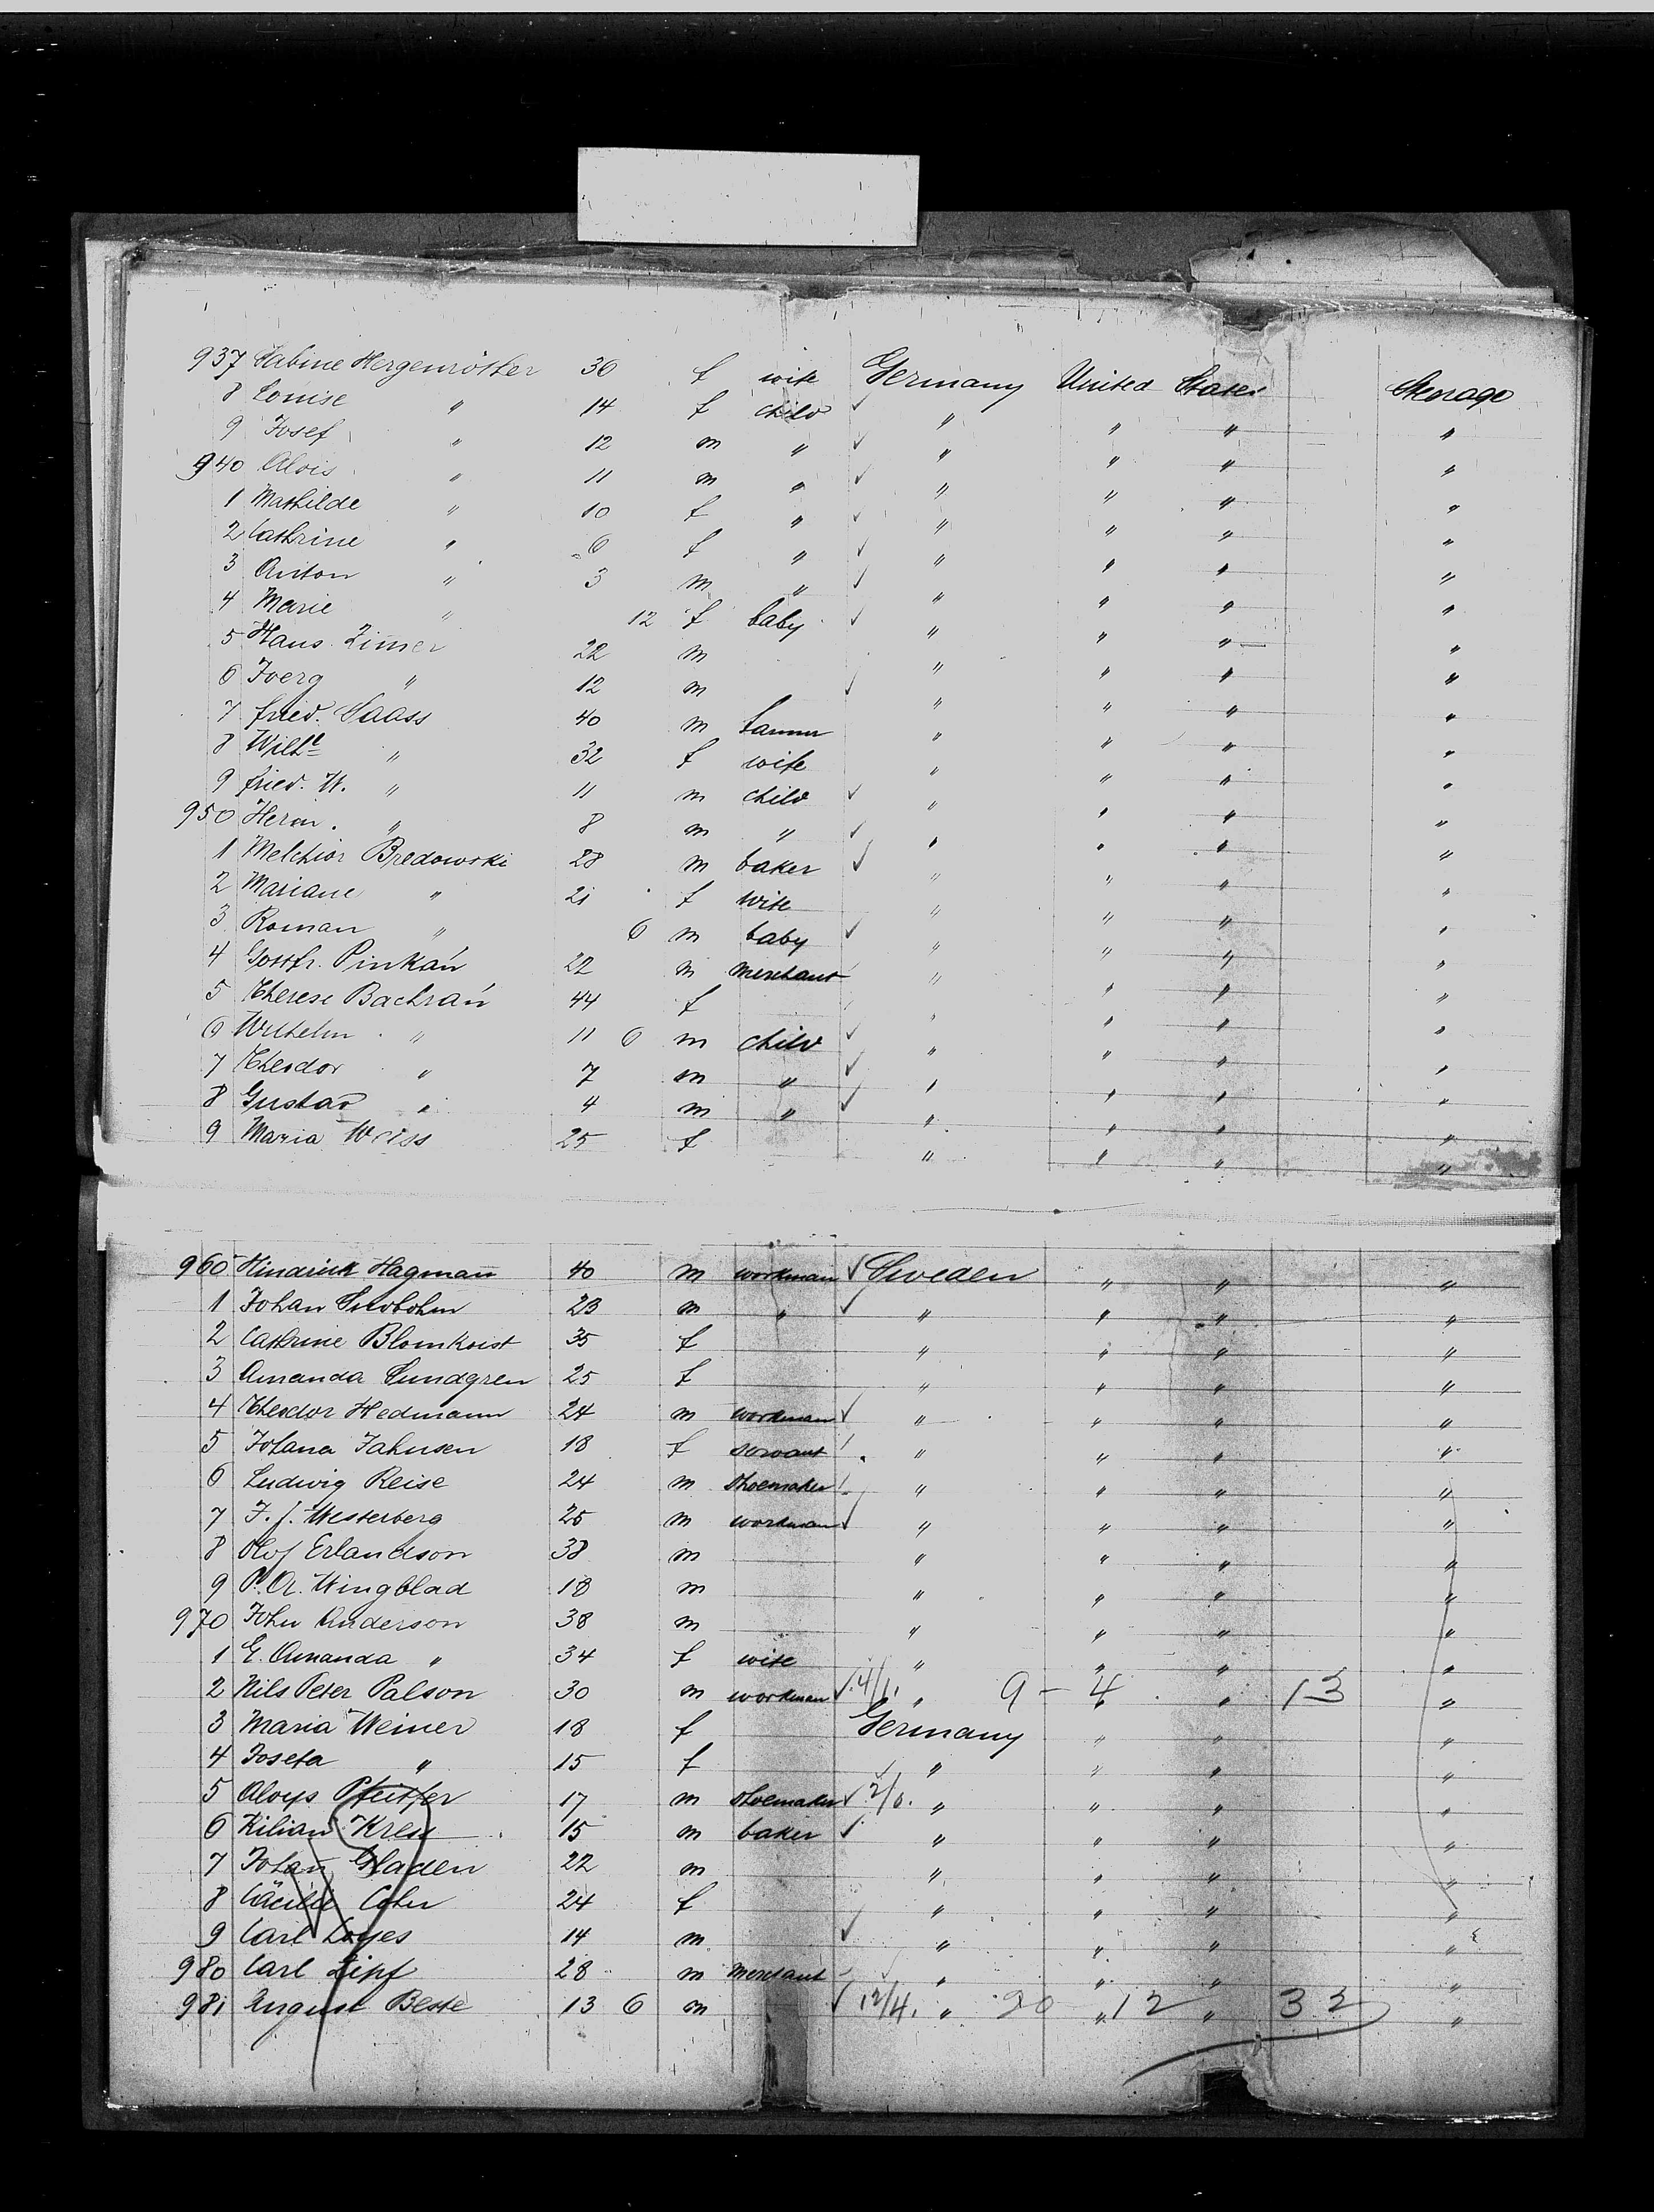 937 Sabine Hergenröther 36 f wife Germany United States Steerage
8 Louise " 14 f child ✓ " " " "
9 Josef " 12 m " ✓ " " " "
940 Alois " 11 m " ✓ " " " "
1 Mathilde " 10 f " ✓ " " " "
2 Cathrine " 6 f " ✓ " " " "
3 Anton " 3 m " ✓ " " " "
4 Marie " 12 f baby ✓ " " " "
5 Hans Zimer 22 m " " " "
6 Joerg " 12 m ✓ " " " "
7 Fried. Saass 40 m farmer " " " "
8 Wilhe " 32 f wife " " " "
9 Fried. W. " 11 m child ✓ " " " "
950 Herm. " 8 m " ✓ " " " "
1 Melchior Bredowski 28 m baker ✓ " " " "
2 Mariane " 21 f wife " " " "
3 Roman " 6 m baby ✓ " " " "
4 Gottfr. Pinkań 22 m merchant " " " "
5 Therese Bachrań 44 f " " " "
6 Wilhelm " 11 6 m child ✓ " " " "
7 Theodor " 7 m " ✓ " " " "
8 Gustav " 4 m " ✓ " " " "
9 Maria Weiss 25 f " " " "
960 Hindrick Hagman 40 m workman ✓ Sweden " " "
1 Johan 23 m " ✓ " " " "
2 Cathrine Blomkvist 35 f " " " "
3 Amanda Sundgren 25 f " " " "
4 Theodor Hedmann 24 m workman ✓ " " " "
5 Johana Jahnsen 18 f servant " " " "
6 Ludwig Reise 24 m shoemaker " " " "
7 J. J. Westerberg 25 m workman ✓ " " " "
8 Olof Erlandson 38 m " " " "
9 P. A. Wingblad 18 m " " " "
970 John Anderson 38 m " " " "
1 E. Amanda " 34 f wife " " " "
2 Nils Peter Palson 30 m workman ✓ 4/1. " 9 - 4 " 13 "
3 Maria Weiner 18 f Germany " " "
4 Josefa " 15 f " " " "
5 Aloys Pfeiffer 17 m shoemaker ✓ 2/0. " " " "
6 Kilian Kress 15 m baker ✓ " " " "
7 Johan Gladen 22 m " " " "
8 Cäcilie Cohn 24 f " " " "
9 Carl 14 m ✓ " " " "
980 Carl Zipf 28 m merchant " " " "
981 August Beste 13 6 m ✓ 12/4. " 20 " 12 " 32 "